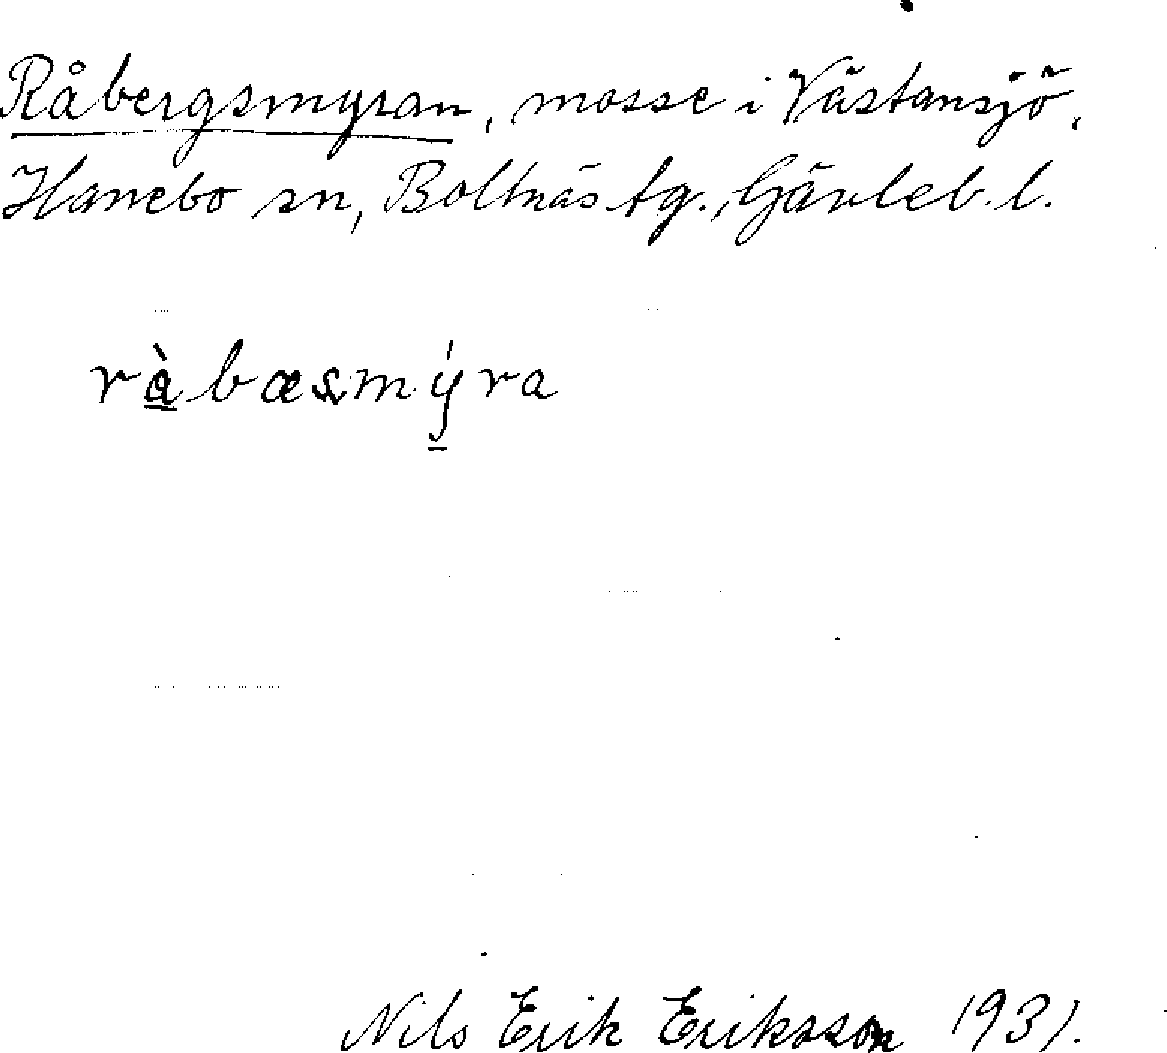 Råbergsmyran, mosse i Västansjö,
Hanebo sn, Bollnäs tg., Gävleb. l.
ràbæsmýra
Nils Erik Eriksson 1931.